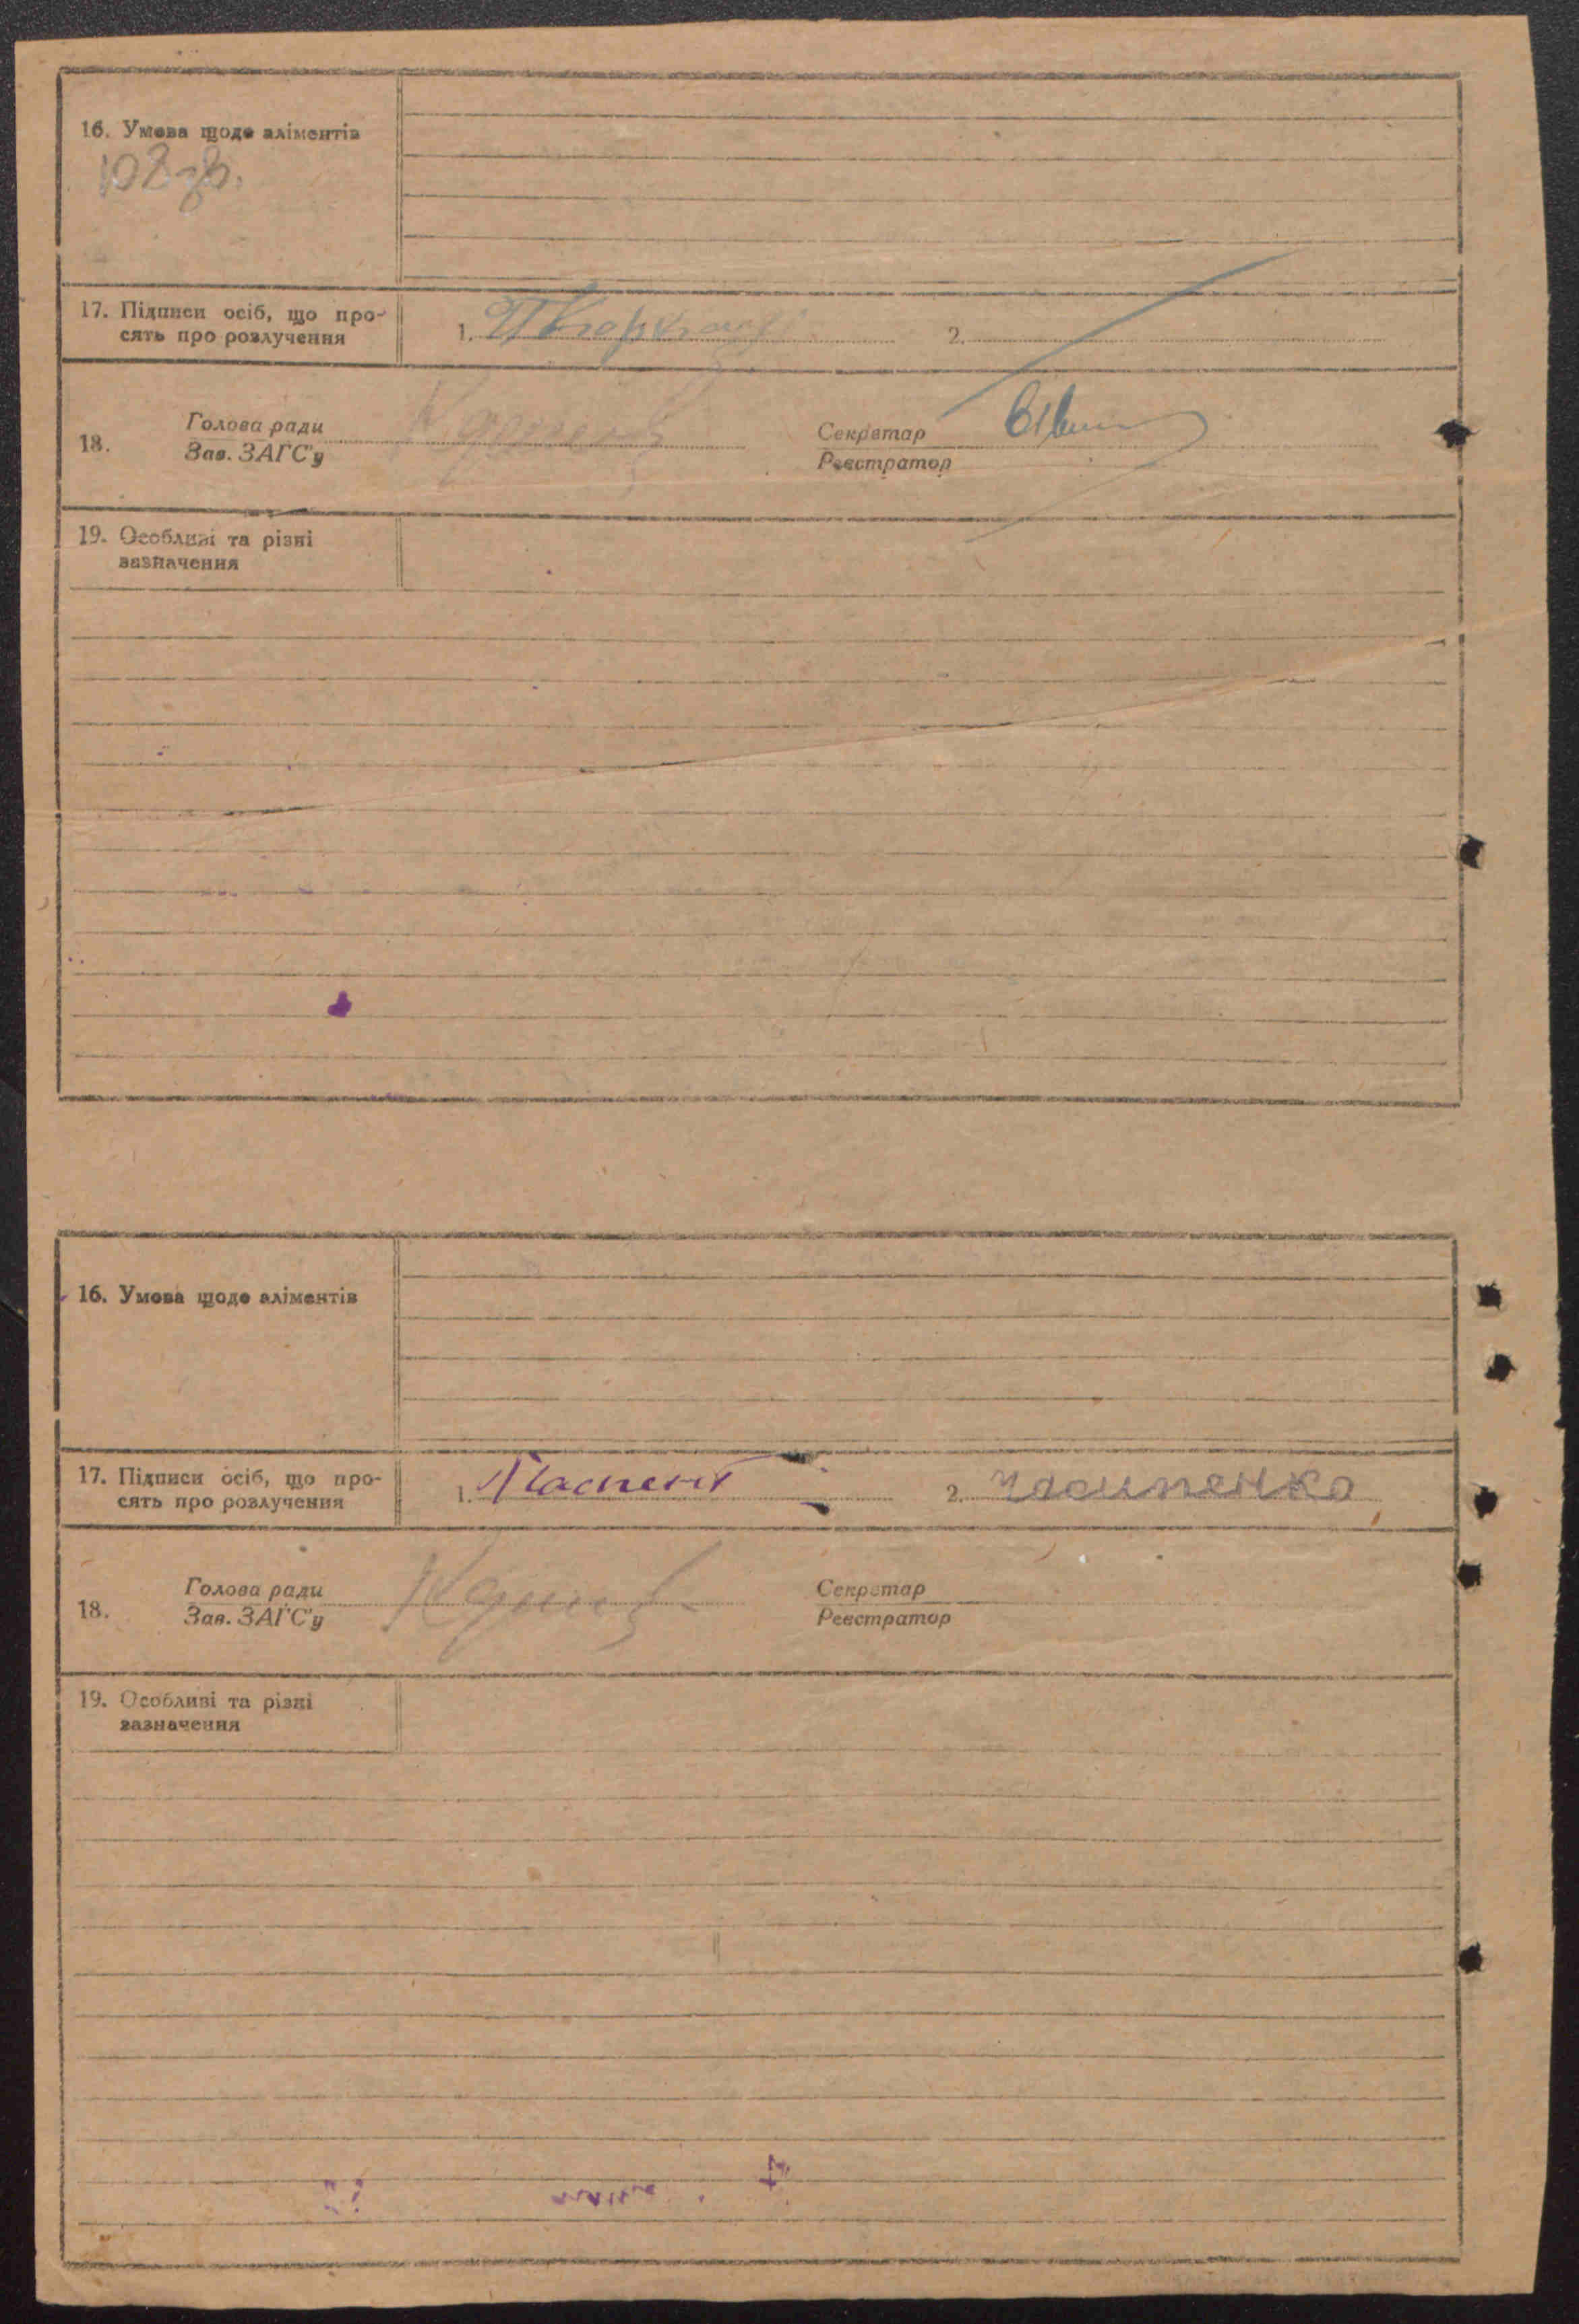 16. Умова щодо аліментів
108 зв.
17. Підписи осіб, що про-
сять про розлучення
1.
2.
18.
Голова ради
Зав. ЗАГС'у
Секретар
Реєстратор
19. Особливі та різні
зазначення
16. Умова щодо аліментів
17. Підписи осіб, що про-
сять про розлучення
1.
2.
18.
Голова ради
Зав. ЗАГС'у
Секретар
Реєстратор
19. Особливі та різні
зазначення